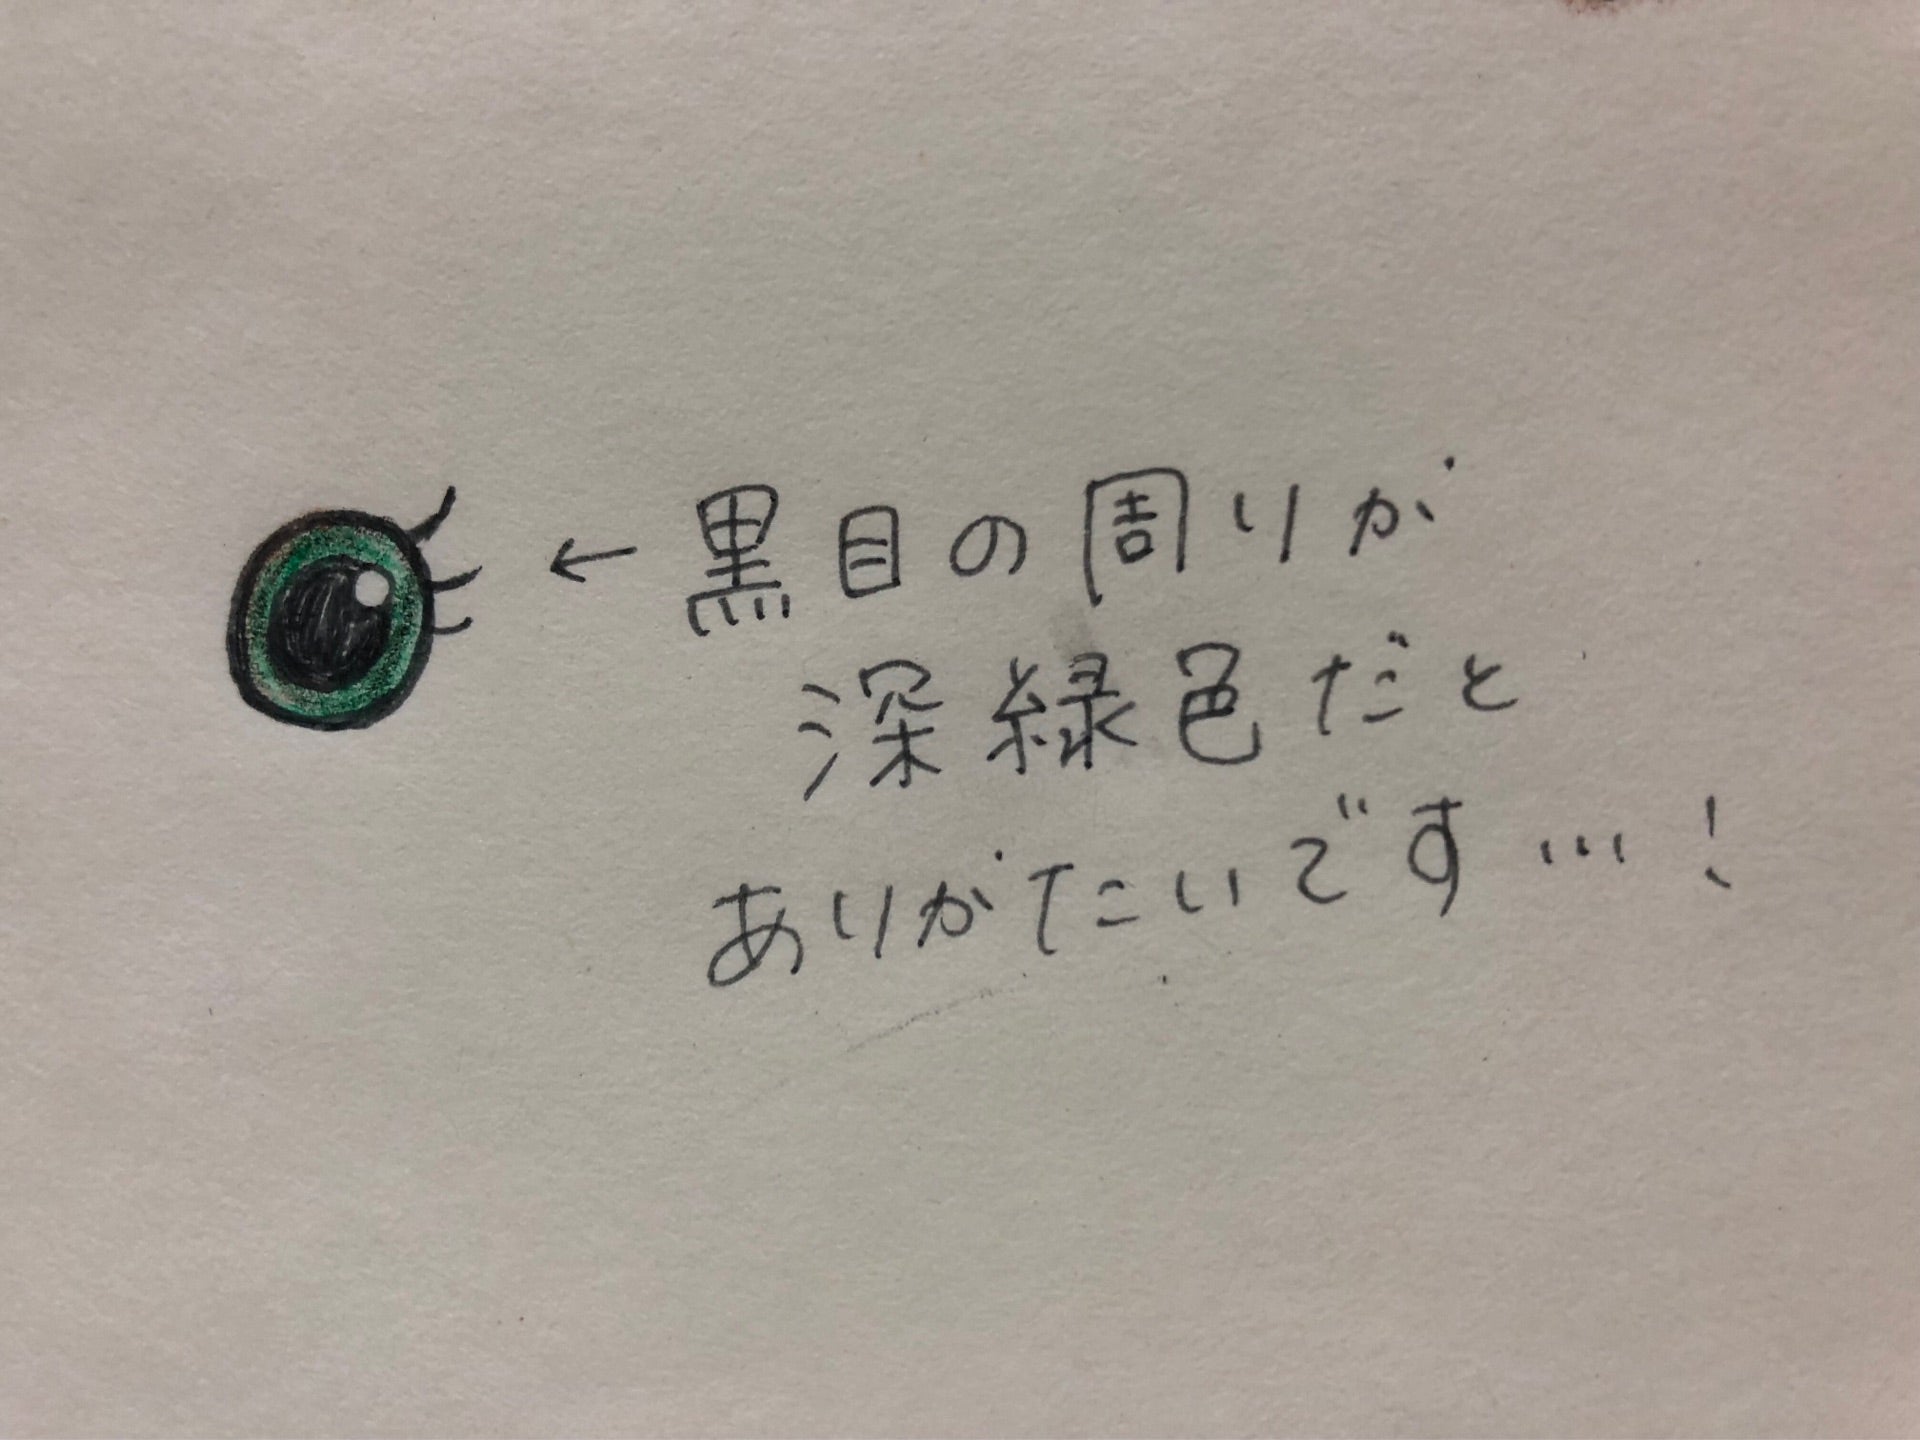 ←黒目の周りが
深緑色だと
ありがたいです…!